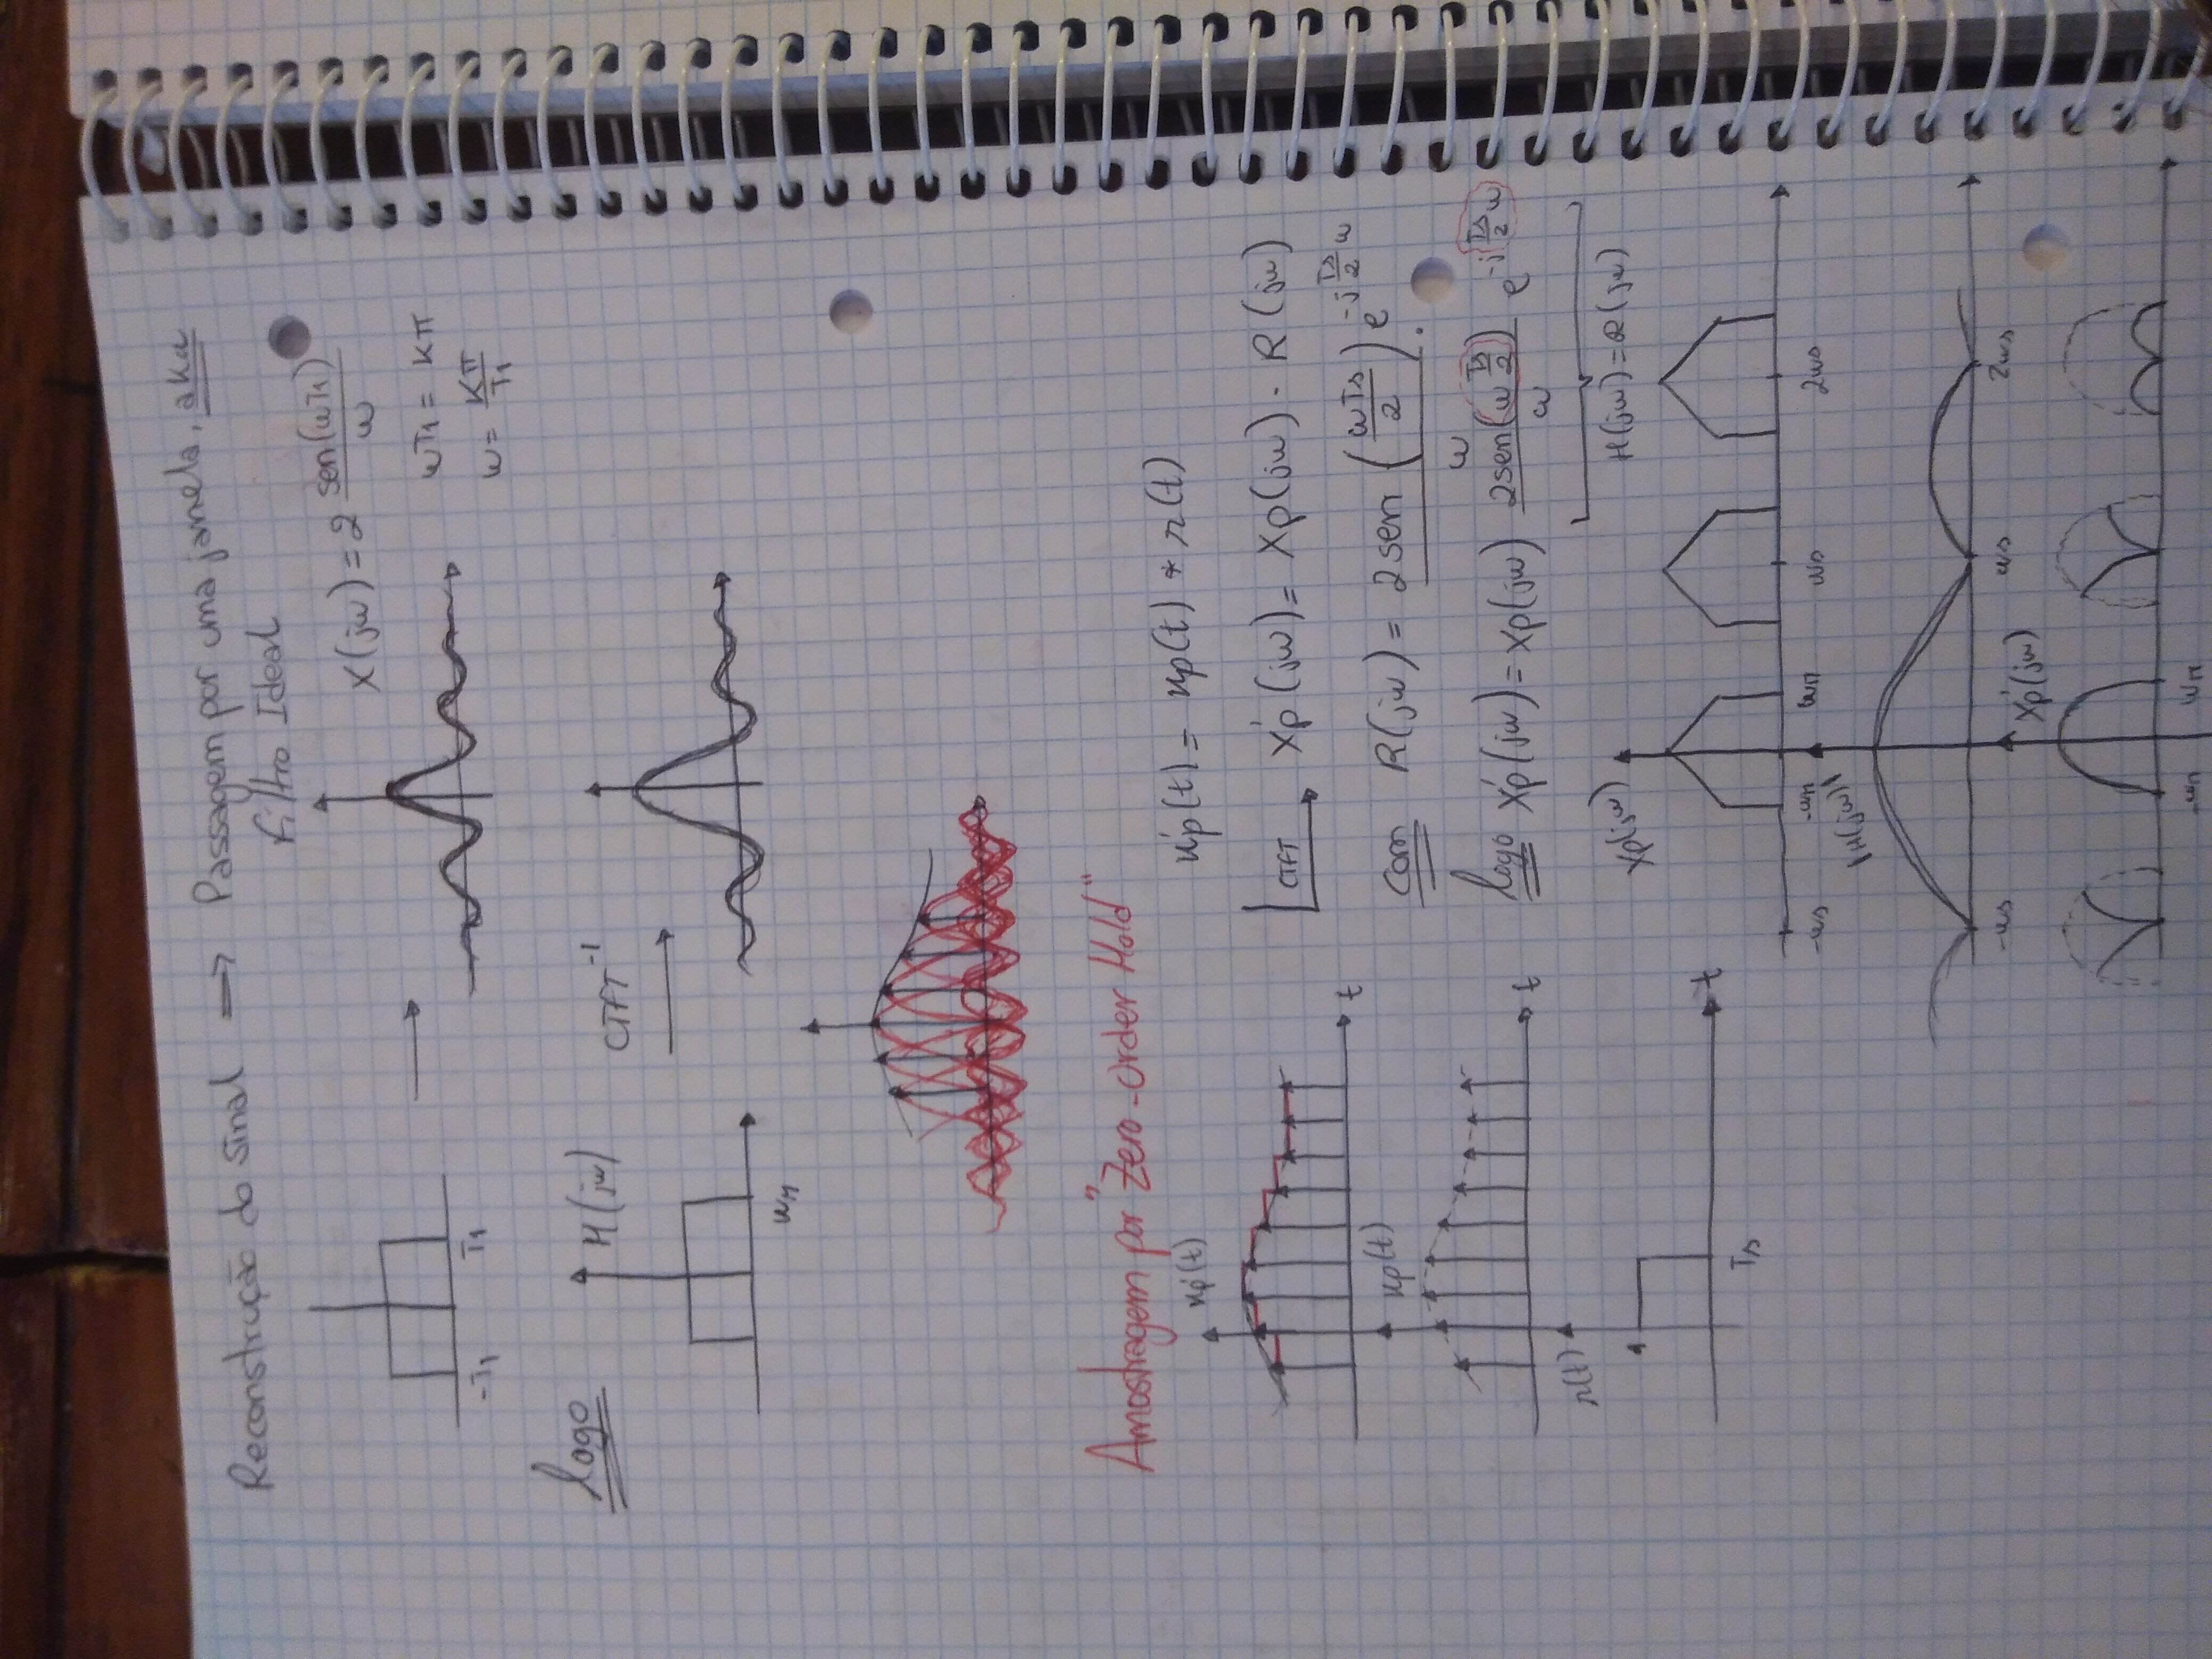 Reconstrução do sinal ⟹ Passagem por uma janela, aka
filtro Ideal
X(jω) = 2 sen(ωT1) / ω
-T1 T1
ωT1 = Kπ
ω = Kπ / T1
logo
H(jω)
CTFT⁻¹
ωM
Amostragem por "Zero-Order Hold"
xp'(t)
xp'(t) = xp(t) * r(t)
t
CTFT
Xp'(jω) = Xp(jω) · R(jω)
xp(t)
com R(jω) = 2sen(ωTs/2) / ω · e^(-j Ts/2 ω)
t
logo Xp'(jω) = Xp(jω) 2sen(ω Ts/2) / ω e^(-j Ts/2 ω)
H(jω) = R(jω)
r(t)
1
t
Ts
Xp(jω)
-ωs -ωM ωM ωs 2ωs
|H(jω)|
-ωs ωs 2ωs
Xp'(jω)
-ωM ωM